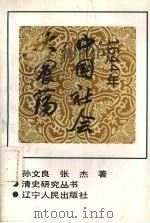 中国社会
大震荡
孙文良 张杰 著
清史研究丛书
辽宁人民出版社